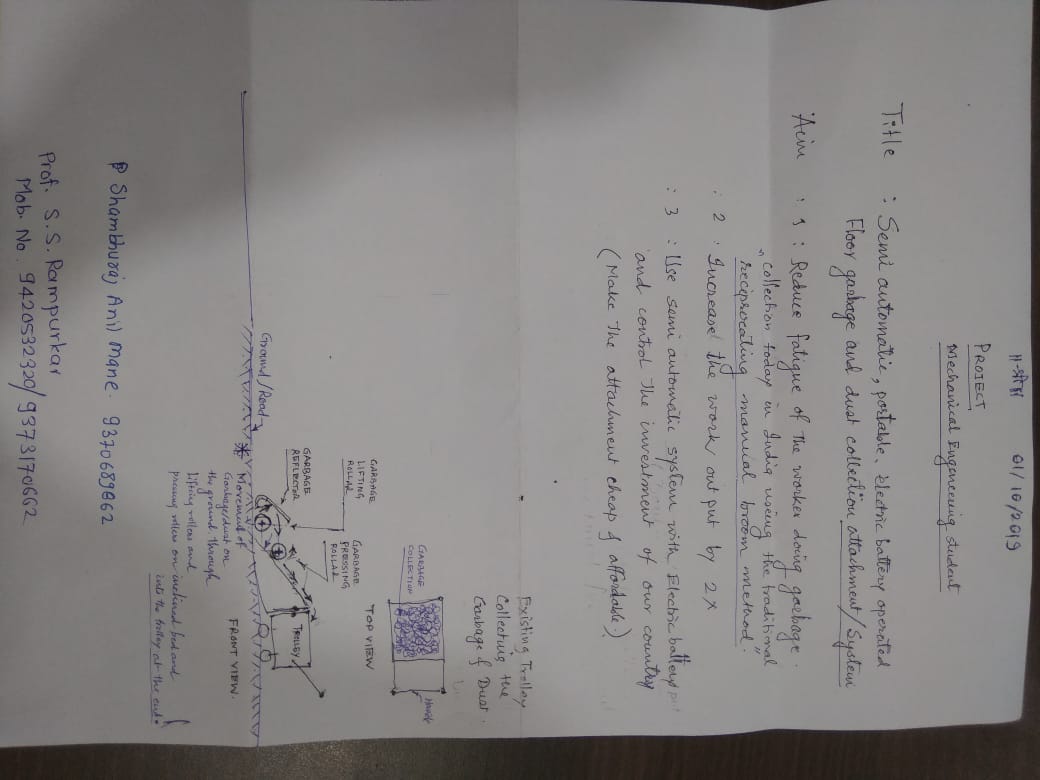 01/10/2019
PROJECT
Mechanical Engineering student
Title : Semi automatic, portable, Electric battery operated
Floor garbage and dust collection attachment/System
Aim : 1 : Reduce fatigue of the worker doing garbage
collection today in India using the traditional
"reciprocating manual broom method."
: 2 : Increase the work output by 2X
: 3 : Use semi automatic system with Electric battery
and control the investment of our country
(Make the attachment cheap & affordable)
Existing Trolley
Collecting the
Garbage & Dust.
GARBAGE
COLLECTION
Handle
TOP VIEW
GARBAGE
LIFTING
ROLLAR
GARBAGE
PRESSING
ROLLAR
GARBAGE
REFLECTOR
TROLLEY
Ground/Road
FRONT VIEW.
* Movement of
Garbage/dust on
the ground through
Lifting rollers and
pressing rollers on inclined bed and
into the trolley at the end.
Shambhuraj Anil Mane. 9370689662
Prof. S. S. Rampurkar
Mob. No. 9420532320/9373170662